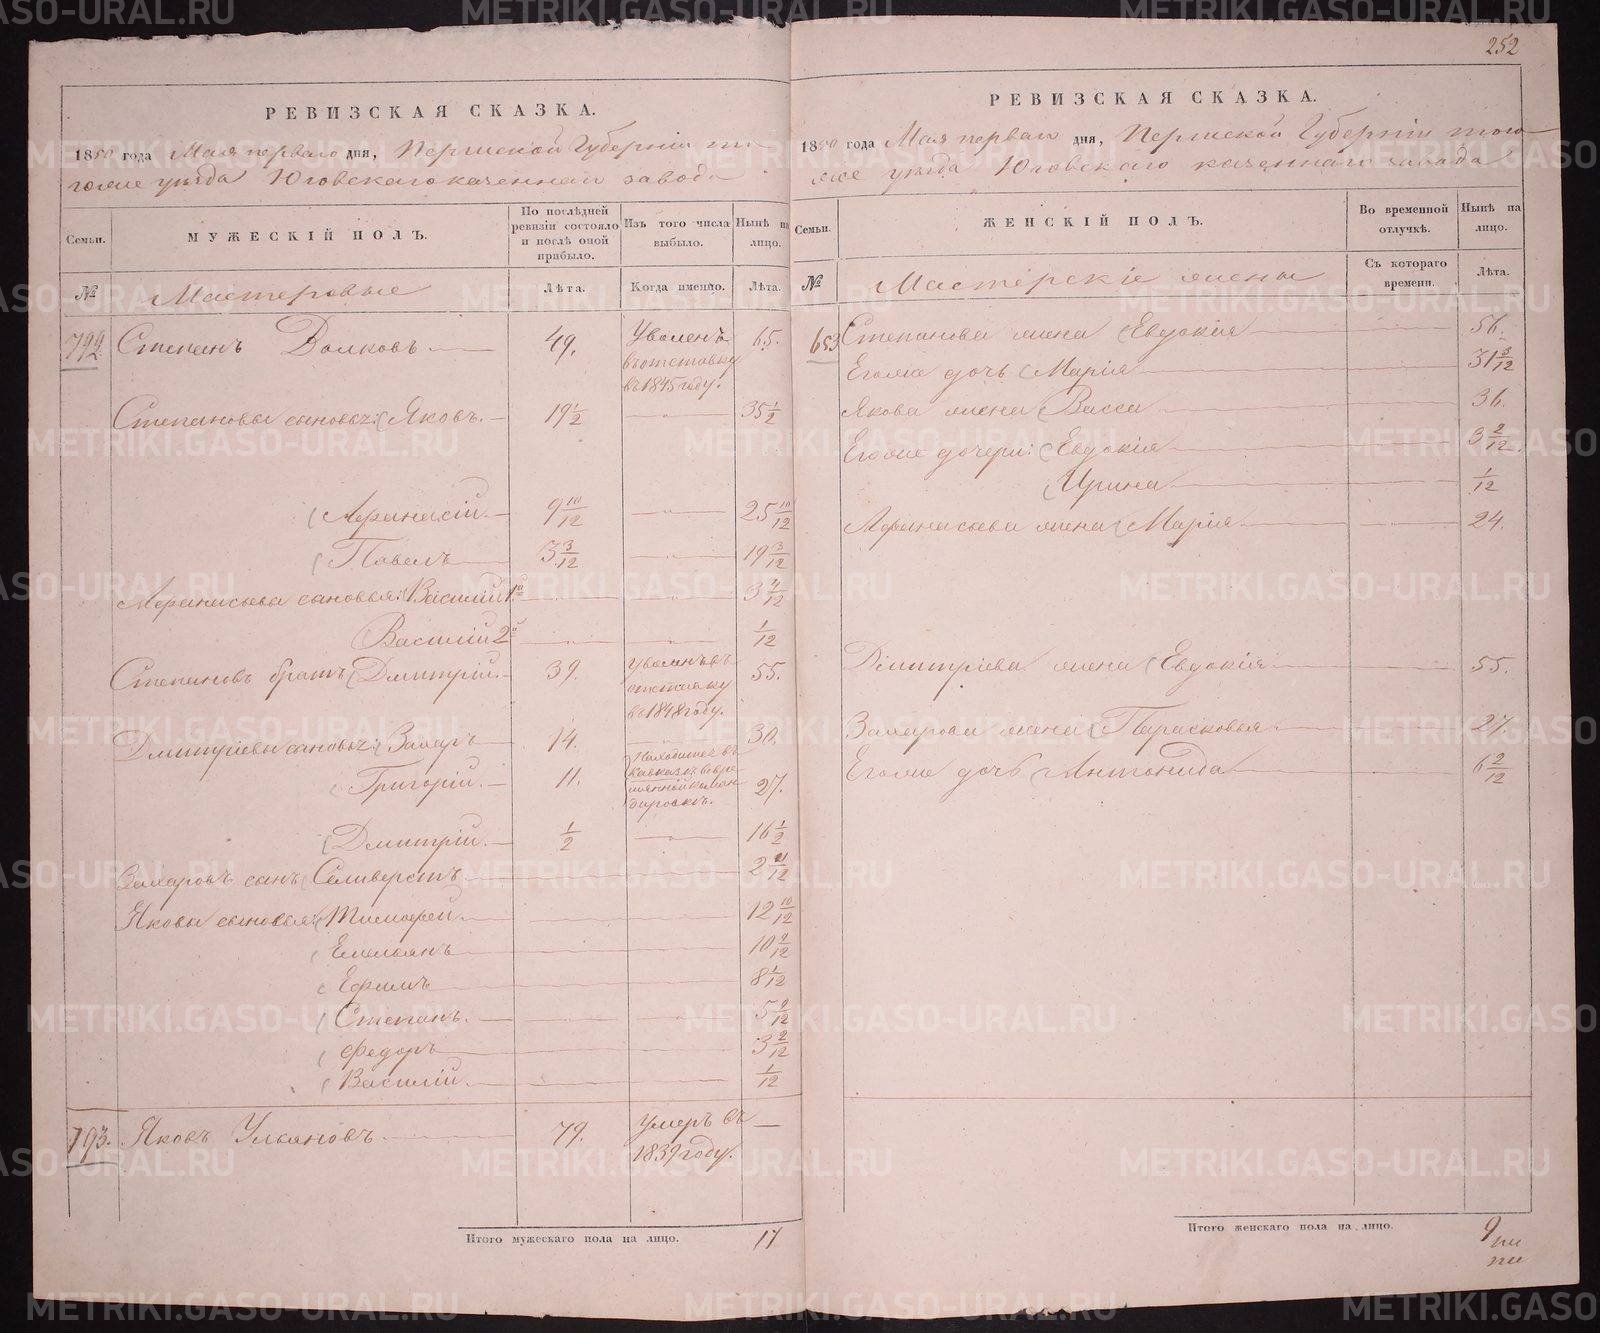 252
РЕВИЗСКАЯ СКАЗКА.
1850 года Мая перваго дня, Пермской Губерніи то
гоже уѣзда Юговскаго казеннаго завода
Семьи. МУЖЕСКІЙ ПОЛЪ. По послѣдней ревизіи состояло и послѣ оной прибыло. Изъ того числа выбыло. Нынѣ на лицо.
№ Мастеровые Лѣта. Когда именно. Лѣта.
792 Степанъ Волковъ 49. Уволенъ въ отставку въ 1845 году. 65.
Степановы сыновья: Яковъ. 19 1/2 — 35 1/2
Афанасій. 9 10/12 — 25 10/12
Павелъ 3 3/12 — 19 3/12
Афанасьева сыновья: Василій 1й — 3 4/12
Василій 2й — 1/12
Степановъ братъ Дмитрій. 39. Уволенъ въ отставку въ 1848 году. 55.
Дмитріевы сыновья: Захаръ 14. — 30.
Григорій. 11. Находится въ Кавказѣ въ временной командировкѣ. 27.
Дмитрій. 1/2 — 16 1/2
Захаровъ сынъ Селиверстъ. 2 11/12
Якова сыновья: Тимофей. 12 10/12
Емельянъ 10 9/12
Ефимъ 8 1/12
Степанъ. 5 9/12
Федоръ 3 2/12
Василій. 1/12
793. Яковъ Ульяновъ 79. Умеръ въ 1839 году. —
Итого мужескаго пола на лицо. 17
РЕВИЗСКАЯ СКАЗКА.
1850 года Мая перваго дня, Пермской Губерніи того
же уѣзда Юговскаго казеннаго завода
Семьи. ЖЕНСКІЙ ПОЛЪ. Во временной отлучкѣ. Нынѣ на лицо.
№ Мастерскіе жены Съ котораго времени. Лѣта.
653 Степанова жена Евдокія 56.
Егоже дочь Марія 31 3/12
Якова жена Васса 36.
Егоже дочери: Евдокія 3 2/12
Ирина 1/12
Афанасьева жена Марія 24.
Дмитріева жена Евдокія 55.
Захарова жена Парасковья 27.
Егоже дочь Антонида 6 2/12
Итого женскаго пола на лицо. 9